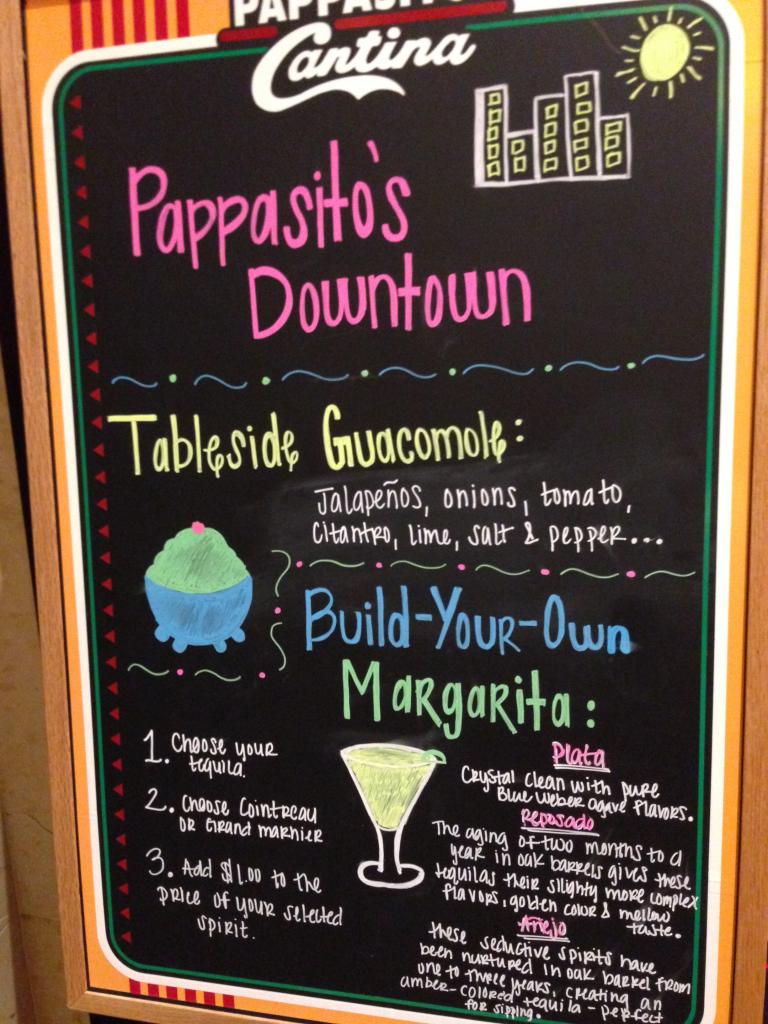 PAPPASITO'S
Cantina
Pappasito's
Downtown
Tableside Guacomole:
Jalapeños, onions, tomato,
Cilantro, lime, salt & pepper...
Build-Your-Own
Margarita:
1. Choose your
tequila.
2. Choose Cointreau
or Grand marnier
3. Add $1.00 to the
price of your selected
spirit.
Plata
Crystal clean with pure
Blue Weber agave flavors.
Reposado
The aging of two months to a
year in oak barrels gives these
tequilas their slightly more complex
flavors, golden color & mellow
taste.
Añejo
These seductive spirits have
been nurtured in oak barrel from
one to three years, creating an
amber-colored tequila - perfect
for sipping.